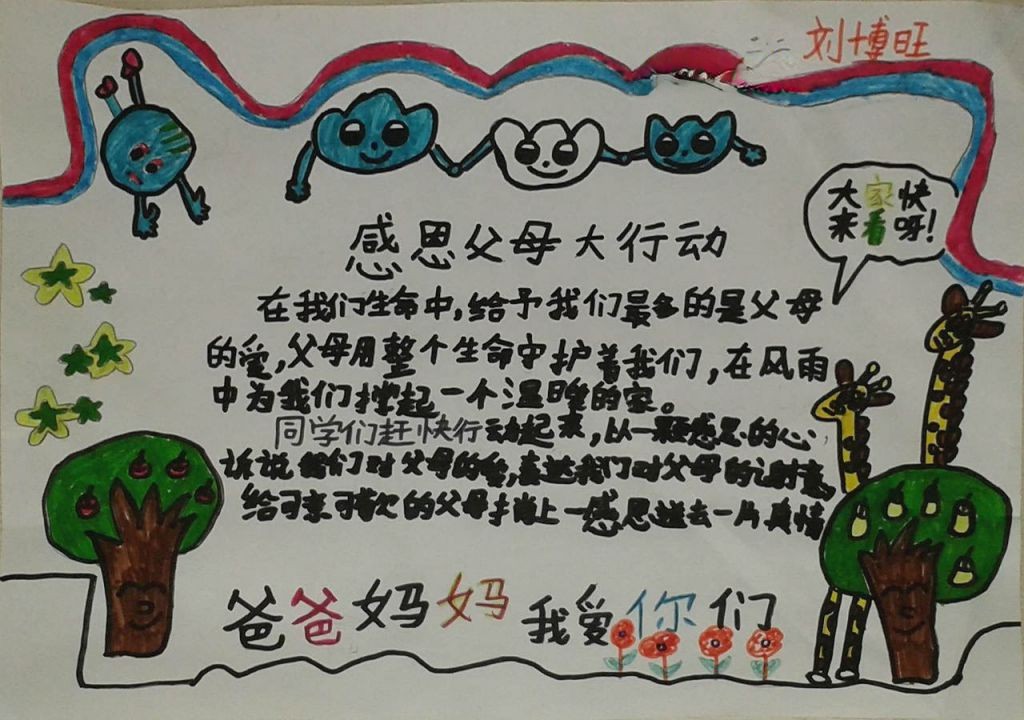 刘博旺
大家快
来看呀!
感恩父母大行动
在我们生命中,给予我们最多的是父母
的爱,父母用整个生命守护着我们,在风雨
中为我们撑起一个温暖的家。
同学们赶快行动起来,以一颗感恩的心,
诉说我们对父母的爱,表达我们对父母的谢意,
给可亲可敬的父母捎上一感恩送去一片真情
爸爸妈妈我爱你们